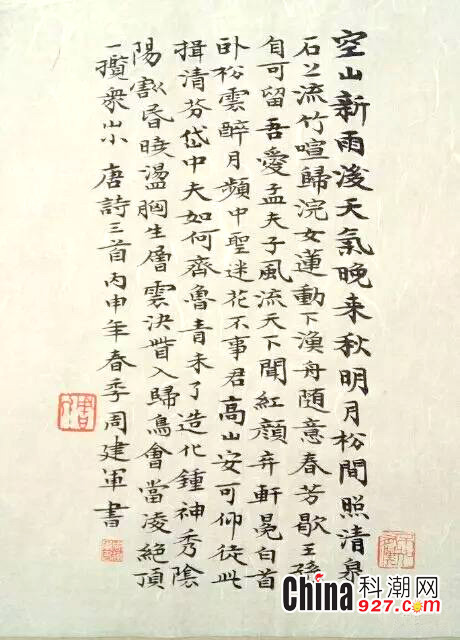 空山新雨後天氣晚来秋明月松間照清泉
石上流竹喧歸浣女蓮動下漁舟随意春芳歇王孫
自可留吾愛孟夫子風流天下聞紅顔弃軒冕白首
卧松雲醉月頻中聖迷花不事君高山安可仰徒此
揖清芬岱中夫如何齊魯青未了造化鍾神秀陰
陽割昏曉盪胸生層雲決眥入歸鳥會當凌絶頂
一攬衆山小 唐詩三首丙申年春季周建軍書
China科潮网
927.com